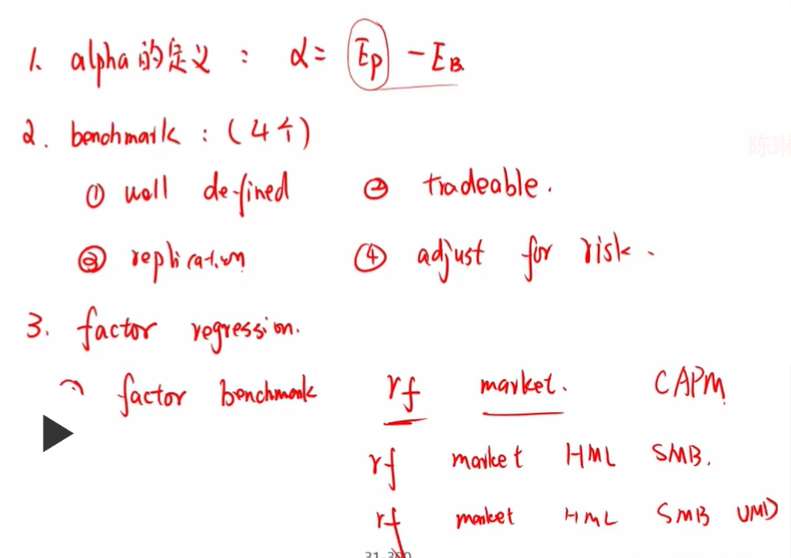 1. alpha的定义: α = Ep - EB
2. benchmark: (4个)
① well defined ② tradeable.
③ replication ④ adjust for risk.
3. factor regression.
factor benchmark rf market. CAPM
rf market HML SMB.
rf market HML SMB UMD